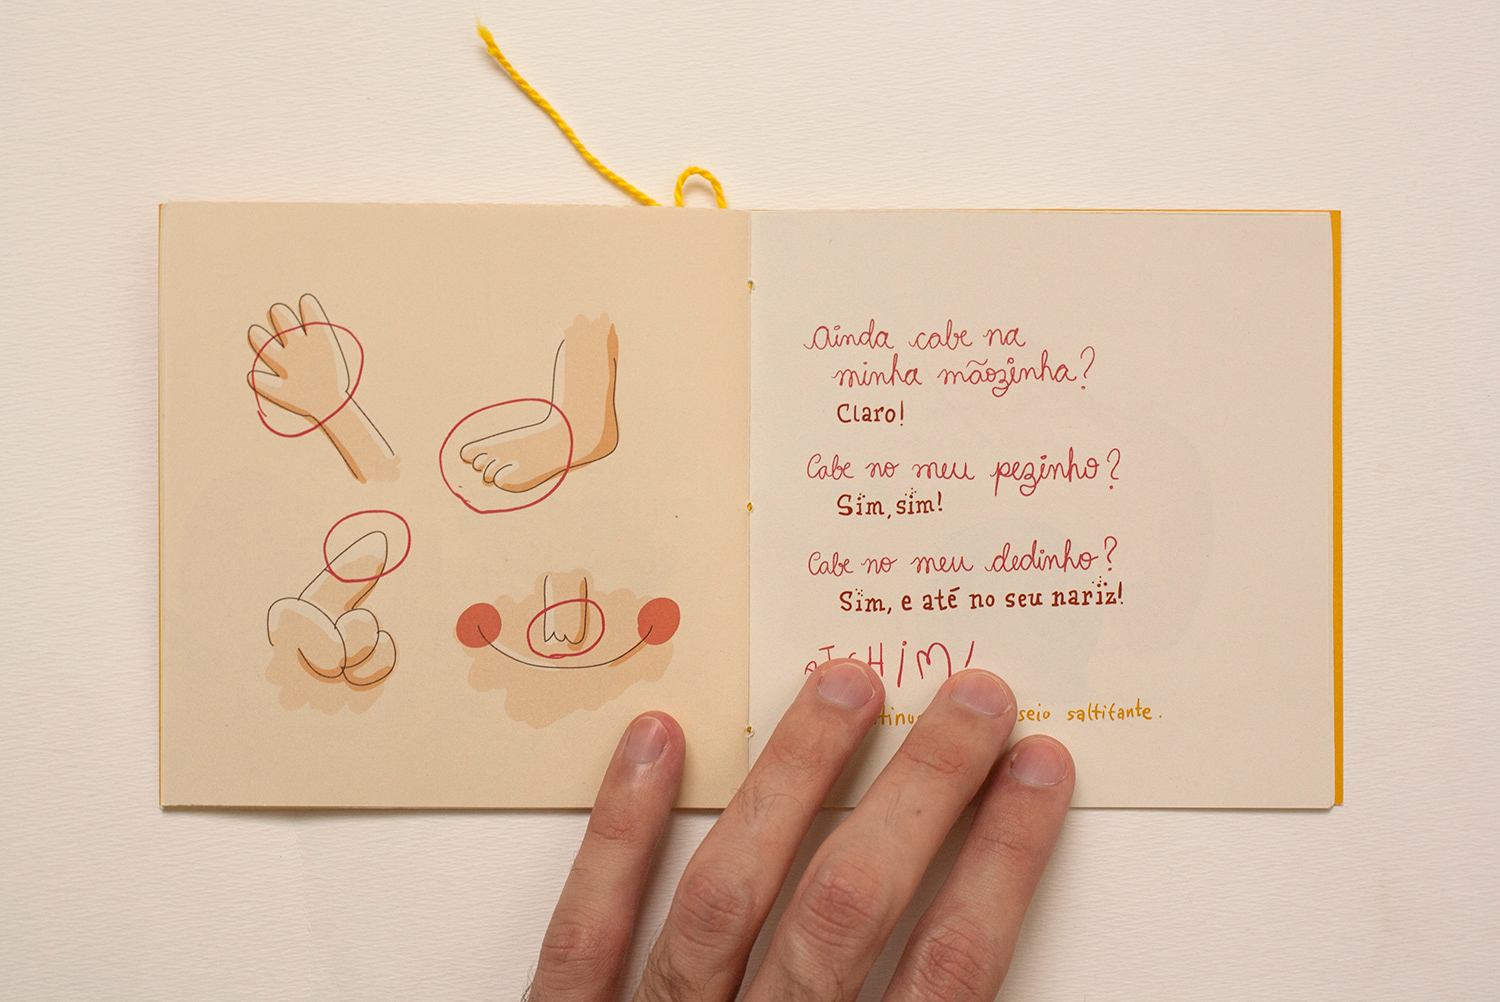 Ainda cabe na
minha mãozinha?
Claro!
Cabe no meu pezinho?
Sim, sim!
Cabe no meu dedinho?
Sim, e até no seu nariz!
saltitante.